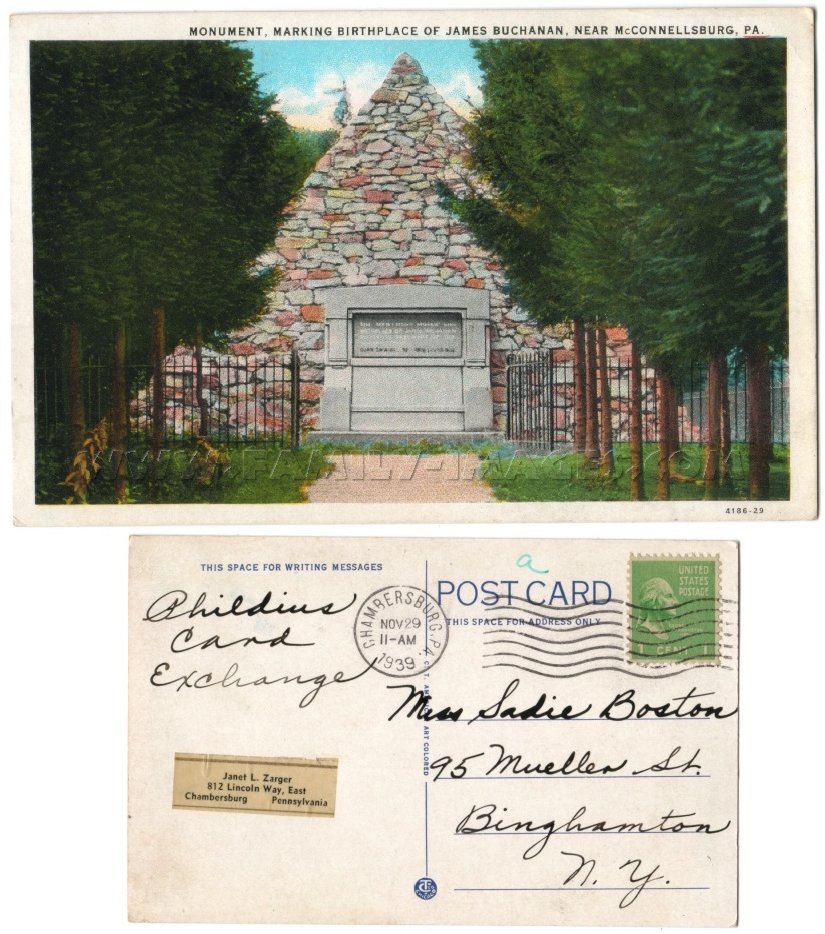 MONUMENT, MARKING BIRTHPLACE OF JAMES BUCHANAN, NEAR McCONNELLSBURG, PA.
WWW.FAMILY-IMAGES.COM
4186-29
THIS SPACE FOR WRITING MESSAGES
Phildius
Card
Exchange
Janet L. Zarger
812 Lincoln Way, East
Chambersburg Pennsylvania
CHAMBERSBURG, PA.
NOV 29
11-AM
1939
a
POST CARD
THIS SPACE FOR ADDRESS ONLY
UNITED
STATES
POSTAGE
1 CENT 1
Miss Sadie Boston
95 Mueller St.
Binghamton
N. Y.
ART COLORED